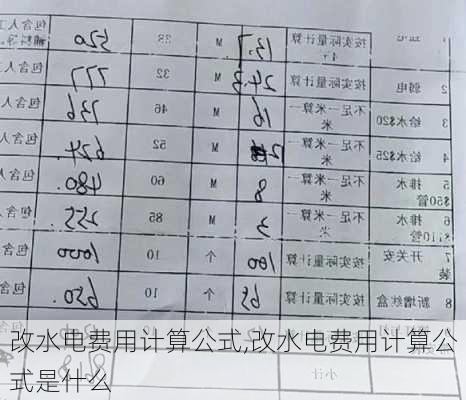 按实际量计算 13.7 M 38 520 包含人工
2 弱电 按实际量计算 24.3 M 32 777 包含
3 给水$20 不足一米算一米 16 M 46 736 包含
4 给水$25 不足一米算一米 M 52 624 包含
5 排水$50管 不足一米算一米 8 M 60 480 包含
6 排水$110管 不足一米算一米 3 M 85 255 包含
7 开关安装 按实际量计算 100 个 10 1000 包含
8 新增丝盒 按实际量计算 65 个 10 650 包含
小计
改水电费用计算公式,改水电费用计算公
式是什么